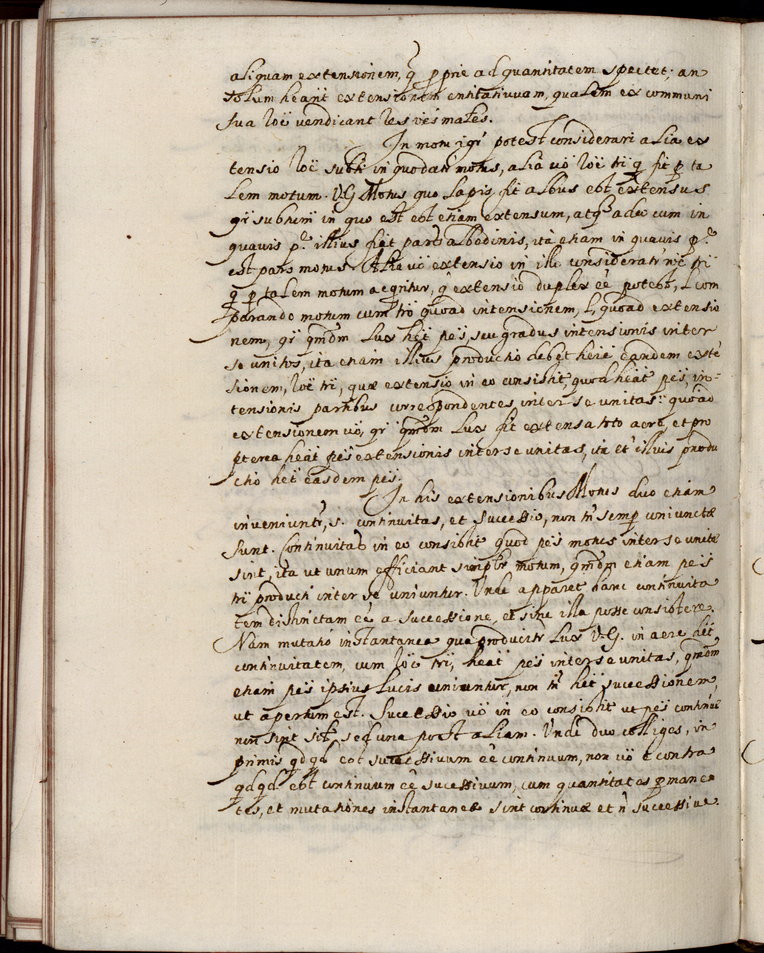 aliquam extensionem, q̃ p proprie ad quantitatem spectet; an
solum heãnt extensionem entitativam, qualem ex communi
sua rõe vendicant res oẽs mãles.
In motu igr̃ potest considerari alia ex
tensio rõe subti in quo datr̃ motus, alia vò rõe tr̃i q̃ fit p ta
lem motum. V.G. Motus quo lapis fit albus est extensus
qr̃ subtum in quo est est etiam extensum, atq̃ adeo cum in
quavis p.te illius fiet pars albedinis, ità etiam in quavis p.te
est pars motus. Alia vò extensio in illo consideratr̃ rõe tr̃i
q̃ p talem motum acqritur, q̃ extensio duplex eẽ potest, l, com
parando motum cum tr̃o quoad intensionem, l, quoad extensio
nem, qr̃ qm̃dm Lux het pẽs, seu gradus intensionis inter
se unitos, ità etiam illius productio debet heré eandem exté
sionem, rõe tr̃i, quæ extensio in eo consistit, quod heãt pẽs, in-
tensionis partibus correspondentes inter se unitas: quoad
extensionem vò, qr̃ qm̃dm Lux fit extensa toto aere, et pro
pterea heãt pẽs extensionis inter se unitas, ità et illius produ
ctio het easdem pẽs.
In his extensionibus Motus duo etiam
inveniuntr̃, s. continuitas, et Successio, non tñ semp coniunctæ
sunt. Continuitas in eo consistit quod pẽs motus inter se unitæ
sint, ità ut unum efficiant simplr̃ motum, qm̃dm etiam pẽs
tr̃i producti inter se uniuntur. Unde apparet hanc continuita
tem distinctam eẽ a successione, et sine illa posse consistere.
Nam mutatio instantanea qua producitr̃ Lux V.G. in aere het
continuitatem, cum rõe tr̃i, heãt pẽs inter se unitas, qm̃dm
etiam pẽs ipsius Lucis uniuntur, non tñ het successionem,
ut apertum est. Successio vò in eo consistit ut pẽs continuæ
non sint sil, sed una post aliam. Unde duo colliges, in
primis qdqd est successivum eẽ continuum, non vò è contra
qdqd est continuum eẽ successivum, cum quantitates permanen
tes, et mutationes instantaneæ sint continuæ et ñ successivæ.